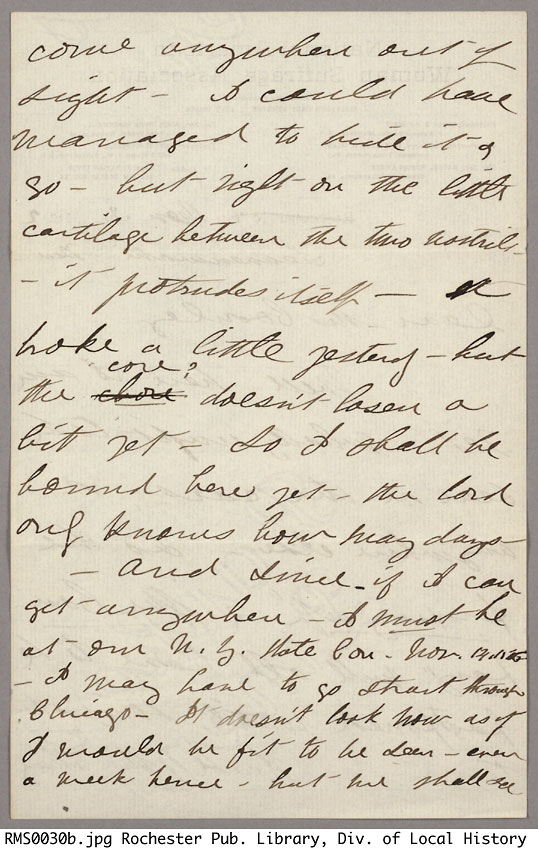 come anywhere out of
sight - I could have
managed to hide it &
go - but right on the little
cartilage between the two nostrils
- it protrudes itself - it
broke a little yestery - but
core?
the chore doesn't losen a
bit yet - So I shall be
bound here yet - the lord
only knows how may days -
- and since - if I can
get anywhere - I must be
at our N. Y. State Con - Nov.
- I may have to go straut through
Chicago - It doesn't look now as if
I would be fit to be seen - even
a week hence - but we shall see
RMS0030b.jpg Rochester Pub. Library, Div. of Local History